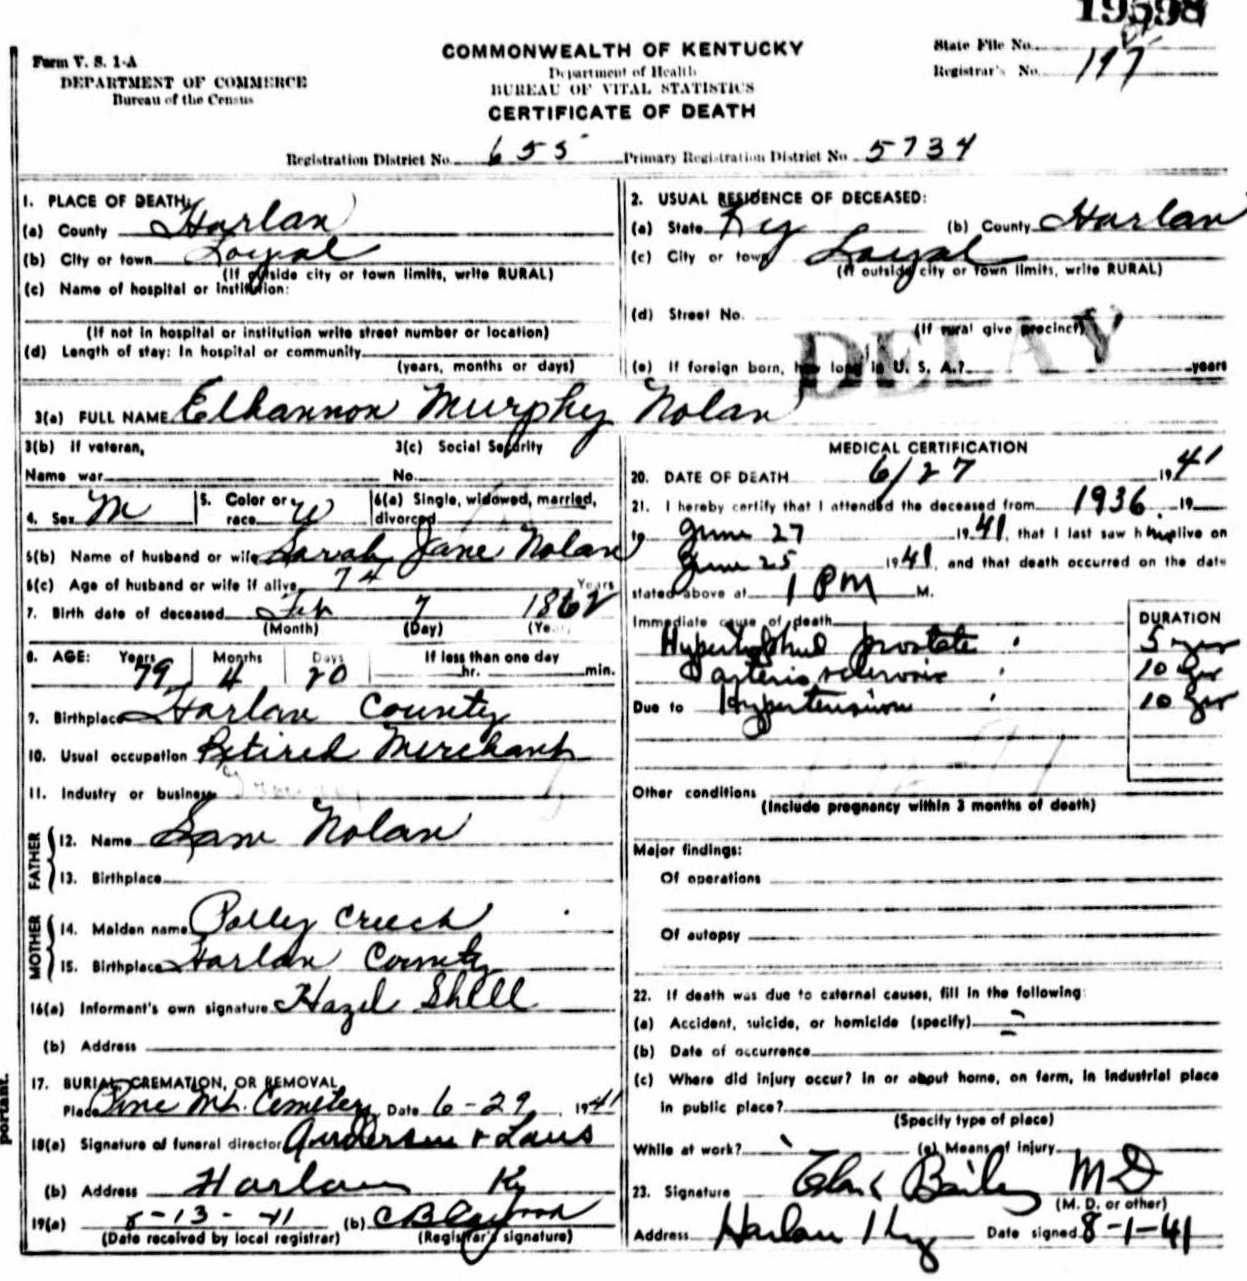 19598
Form V. S. 1-A
DEPARTMENT OF COMMERCE
Bureau of the Census
COMMONWEALTH OF KENTUCKY
Department of Health
BUREAU OF VITAL STATISTICS
CERTIFICATE OF DEATH
State File No.
Registrar's No. 197
Registration District No. 655 Primary Registration District No 5734
1. PLACE OF DEATH:
(a) County Harlan
(b) City or town Loyal
(If outside city or town limits, write RURAL)
(c) Name of hospital or institution:
(If not in hospital or institution write street number or location)
(d) Length of stay: In hospital or community
(years, months or days)
2. USUAL RESIDENCE OF DECEASED:
(a) State Ky (b) County Harlan
(c) City or town Loyal
(If outside city or town limits, write RURAL)
(d) Street No.
(If rural give precinct)
DELAY
(e) If foreign born, how long in U. S. A.? years
3(a) FULL NAME Elhannon Murphy Nolan
3(b) If veteran, 3(c) Social Security
Name war No.
4. Sex M 5. Color or race W 6(a) Single, widowed, married, divorced
6(b) Name of husband or wife Sarah Jane Nolan
6(c) Age of husband or wife if alive 74 Years
7. Birth date of deceased Feb 7 1862
(Month) (Day) (Year)
8. AGE: Years 79 Months 4 Days 20 If less than one day hr. min.
9. Birthplace Harlan County
10. Usual occupation Retired Merchant
11. Industry or business
FATHER
12. Name Sam Nolan
13. Birthplace
MOTHER
14. Maiden name Polley Creech
15. Birthplace Harlan County
16(a) Informant's own signature Hazel Shell
(b) Address
17. BURIAL, CREMATION, OR REMOVAL
Place Pine Mt. Cemetery Date 6-29, 1941
18(a) Signature of funeral director Anderson & Laws
(b) Address Harlan Ky
19(a) 8-13-41 (b) C B
(Date received by local registrar) (Registrar's signature)
portant.
MEDICAL CERTIFICATION
20. DATE OF DEATH 6/27 1941
21. I hereby certify that I attended the deceased from 1936, 19
to June 27 1941, that I last saw him alive on
June 25 1941, and that death occurred on the date
stated above at 1 PM M.
Immediate cause of death DURATION
Hypertrophied prostate 5 yrs
arterio sclerosis 10 yrs
Due to Hypertension 10 yrs
Other conditions
(Include pregnancy within 3 months of death)
Major findings:
Of operations
Of autopsy
22. If death was due to external causes, fill in the following:
(a) Accident, suicide, or homicide (specify)
(b) Date of occurrence
(c) Where did injury occur? In or about home, on farm, in industrial place
in public place?
(Specify type of place)
While at work? (e) Means of injury
23. Signature Clark Bailey MD
(M. D. or other)
Address Harlan Ky Date signed 8-1-41